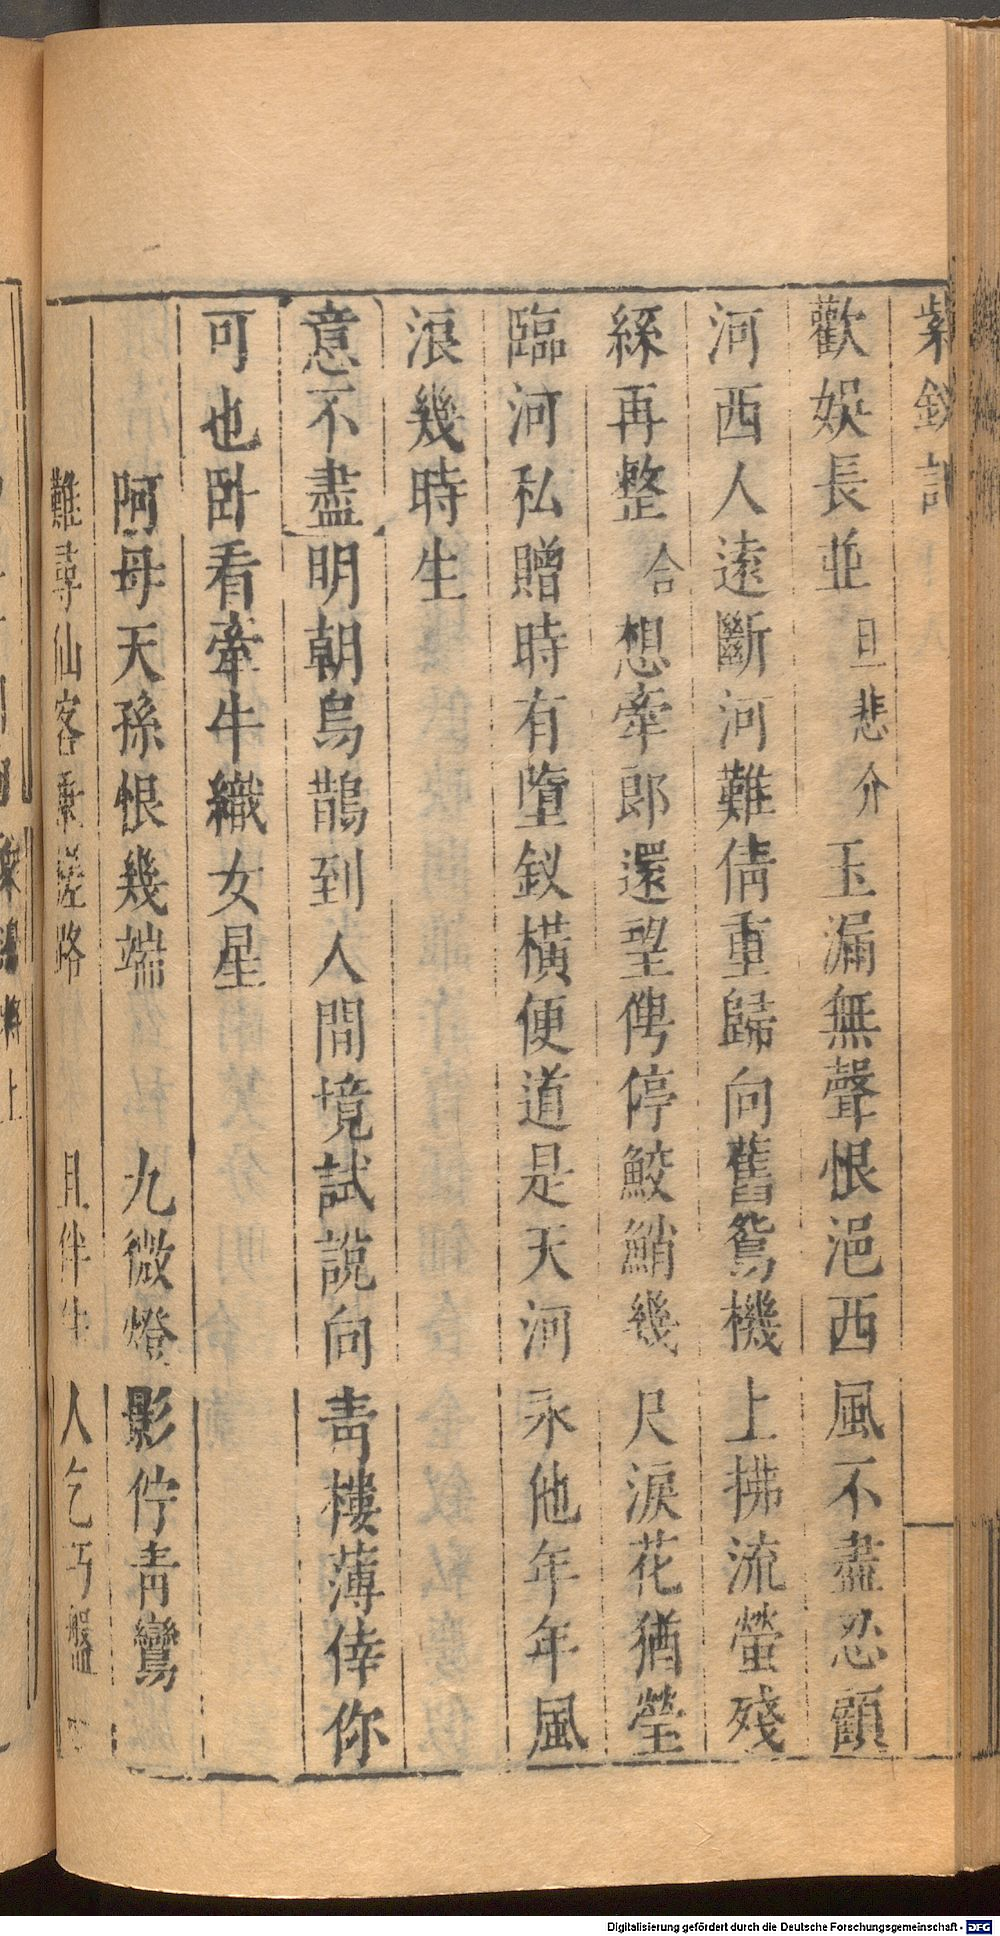 紫釵記
歡娛長並 旦悲介 玉漏無聲恨浥西風不盡忍顧
河西人遠斷河難倩重歸向舊鴛機上拂流螢殘
絲再整 合 想牽郎還望俜停鮫鮹幾尺淚花猶瑩
臨河私贈時有墮釵橫便道是天河永他年年風
浪幾時生
意不盡 明朝烏鵲到人間境試說向青樓薄倖你
可也卧看牽牛織女星
阿母天孫恨幾端 九微燈影佇青鸞
難尋仙客乘槎路 且伴 人乞巧盤
Digitalisierung gefördert durch die Deutsche Forschungsgemeinschaft - DFG